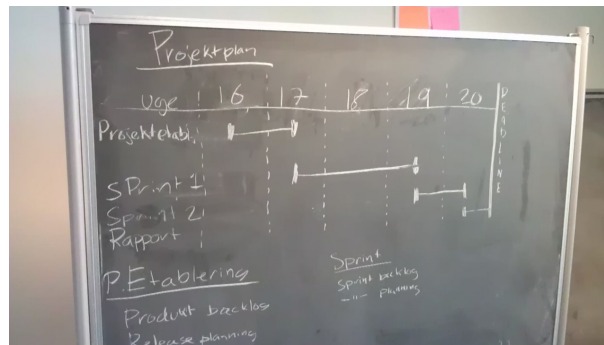 Projektplan
uge 16 17 18 19 20
DEADLINE
Projektetabl.
SPrint 1
Sprint 2
Rapport
P. Etablering
Produkt backlog
Release planning
Sprint
Sprint backlog
-"- planning